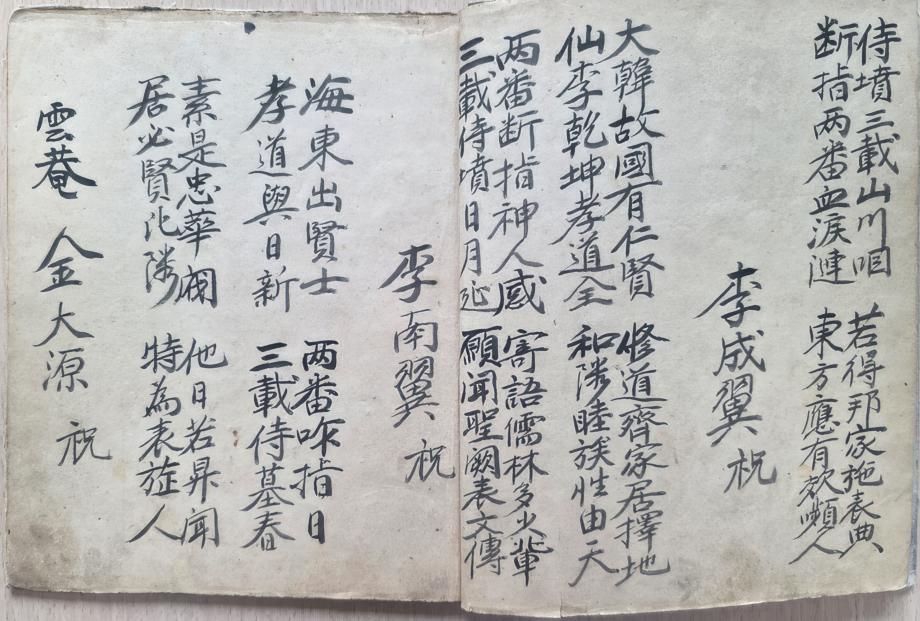 侍墳三載山川咽 若得邦家施表典
断指两番血淚漣 東方應有效嚬人
李成翼 祝
大韓故國有仁賢 修道齊家居擇地
仙李乾坤孝道全 和隣睦族性由天
两番断指神人感 寄語儒林多少輩
三載侍墳日月延 願聞聖闕表文傳
李南翼 祝
海東出賢士 两番咋指日
孝道與日新 三載侍墓春
素是忠華閥 他日若昇聞
居必賢化隣 特為表旌人
雲菴 金大源 祝